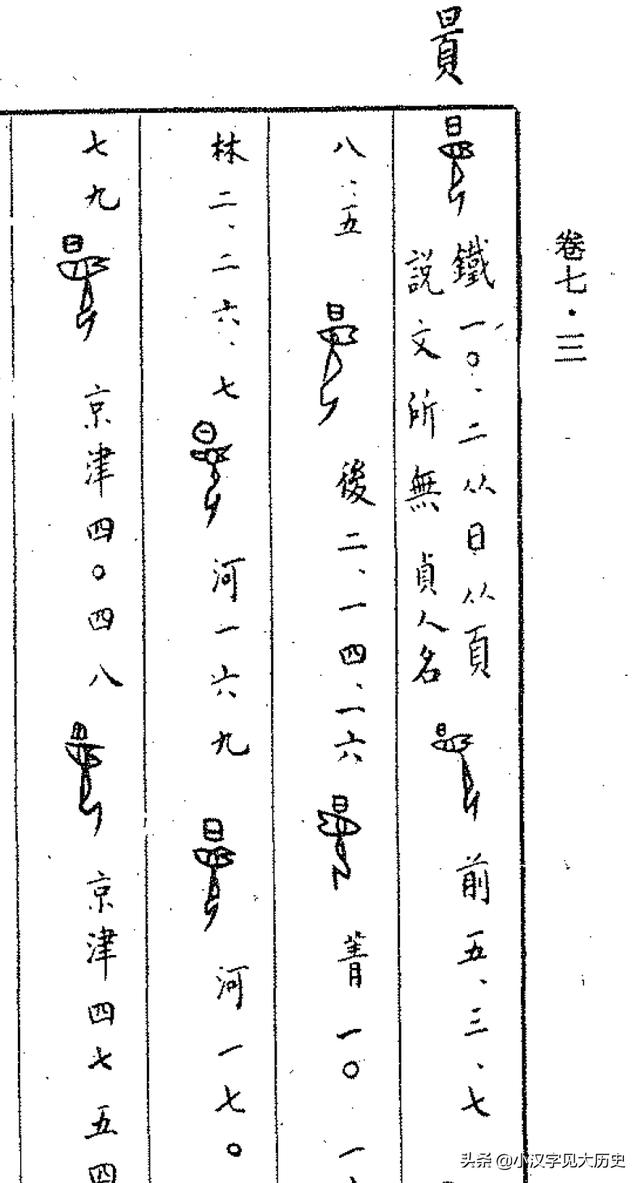 卷七·三
鐵一〇·二从日从頁
說文所無 貞人名
前五、三、七
八、五
後二、一四、一六
菁一〇 一
林二、二六、七
河一六九
河一七〇
七九
京津四〇四八
京津四七五四
头条 @小汉字见大历史